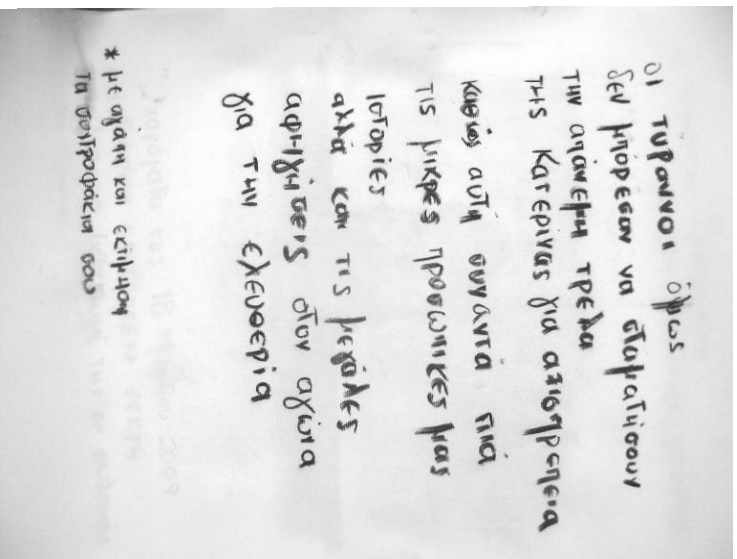 οι τύραννοι όμως
δεν μπόρεσαν να σταματήσουν
την απάνεμη τρέλα
της Κατερίνας για αξιοπρέπεια
καθώς αυτή συναντά πιά
τις μικρές προσωπικές μας
ιστορίες
αλλά και τις μεγάλες
αφηγήσεις στον αγώνα
για την ελευθερία
* με αγάπη και εκτίμηση
τα συντροφάκια σου